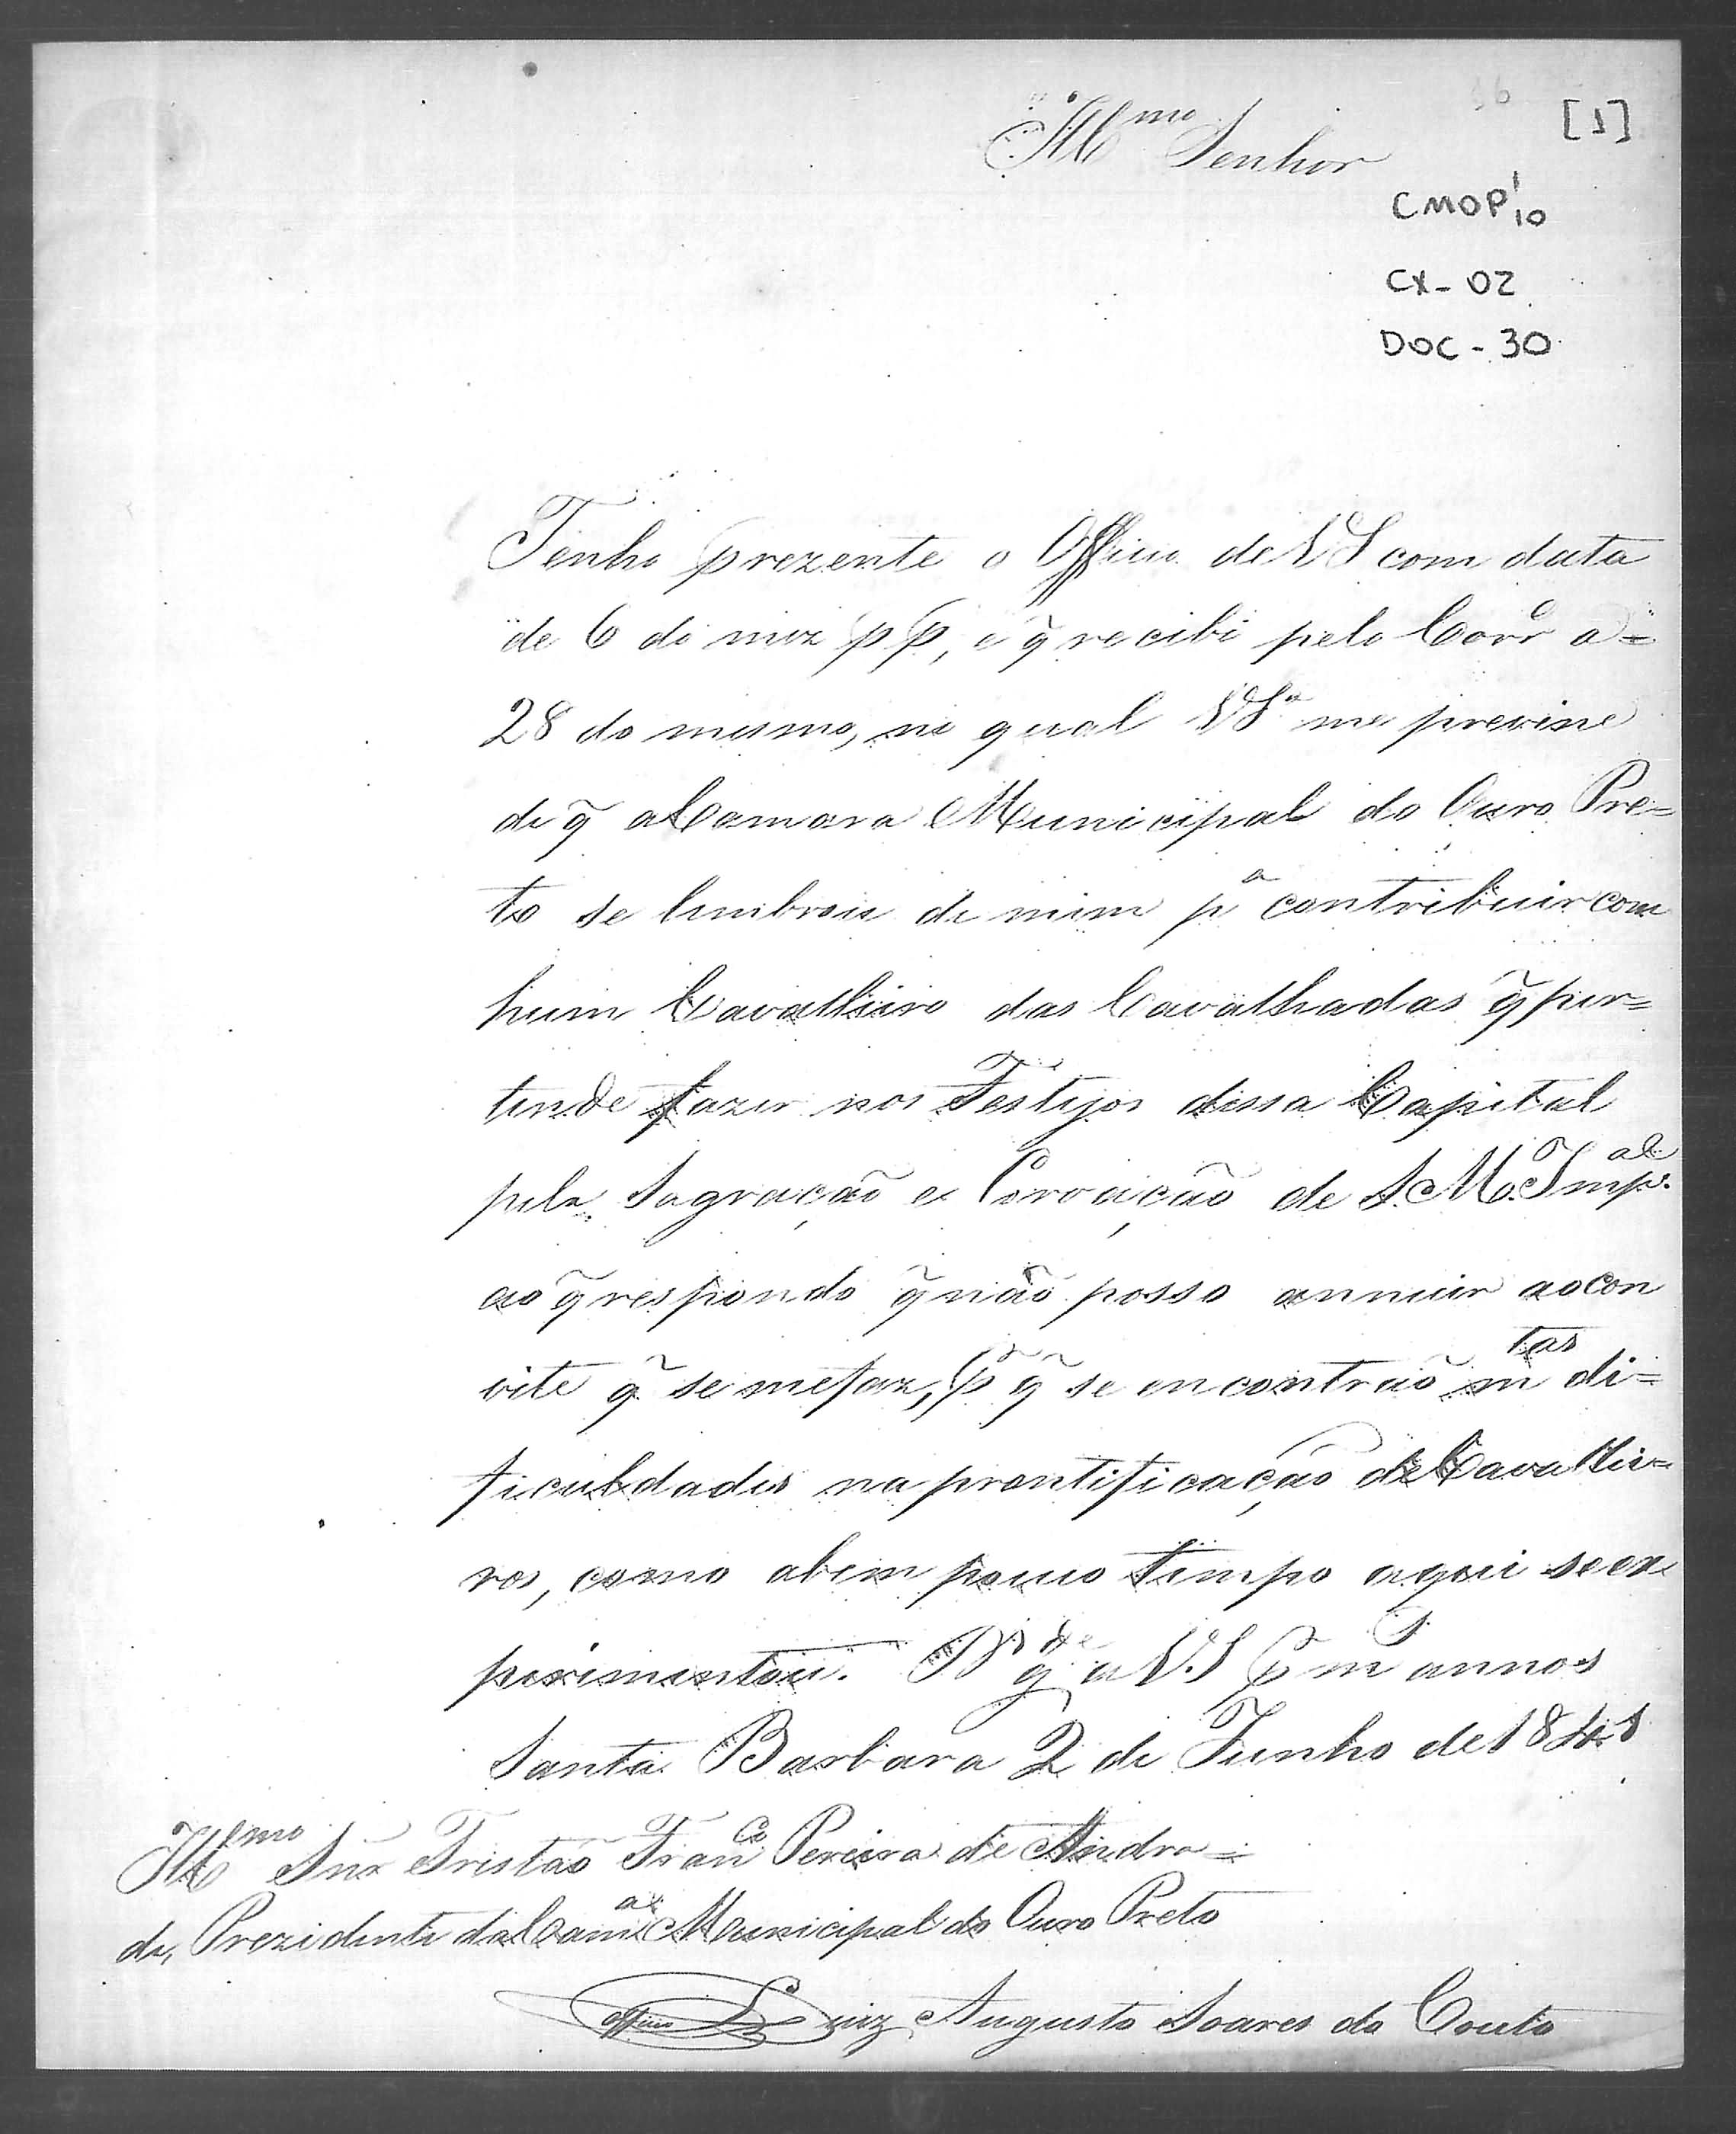 36
[1]
Illmo Senhor
CMOP 1/10
CX - 02
DOC - 30
Tenho prezente o Officio de VS com data
de 6 do mez pp, e q̃ recibi pelo Corro a=
28 do mesmo, no qual VSa me previne
de q̃ a Camara Municipal do Ouro Pre=
to se lembrou de mim pa contribuir com
hum Cavalleiro das Cavalhadas q̃ per=
tende fazer nos Festejos dessa Capital
pela Sagração e Coroação de S. M. Impal
ao q̃ respondo q̃ não posso annuir ao con
vite q̃ se me faz, p̃ q̃ se encontrão mtas di=
ficuldades na prontificação de Cavallei=
ros, como a bem pouco tempo aqui se ex
perimentou. Ds gde a V.S p ms annos
Santa Barbara 2 de Junho de 1841
Illmo Snr Tristão Franco Pereira de Andra=
de, Prezidente da Camal Municipal do Ouro Preto
Luiz Augusto Soares do Couto